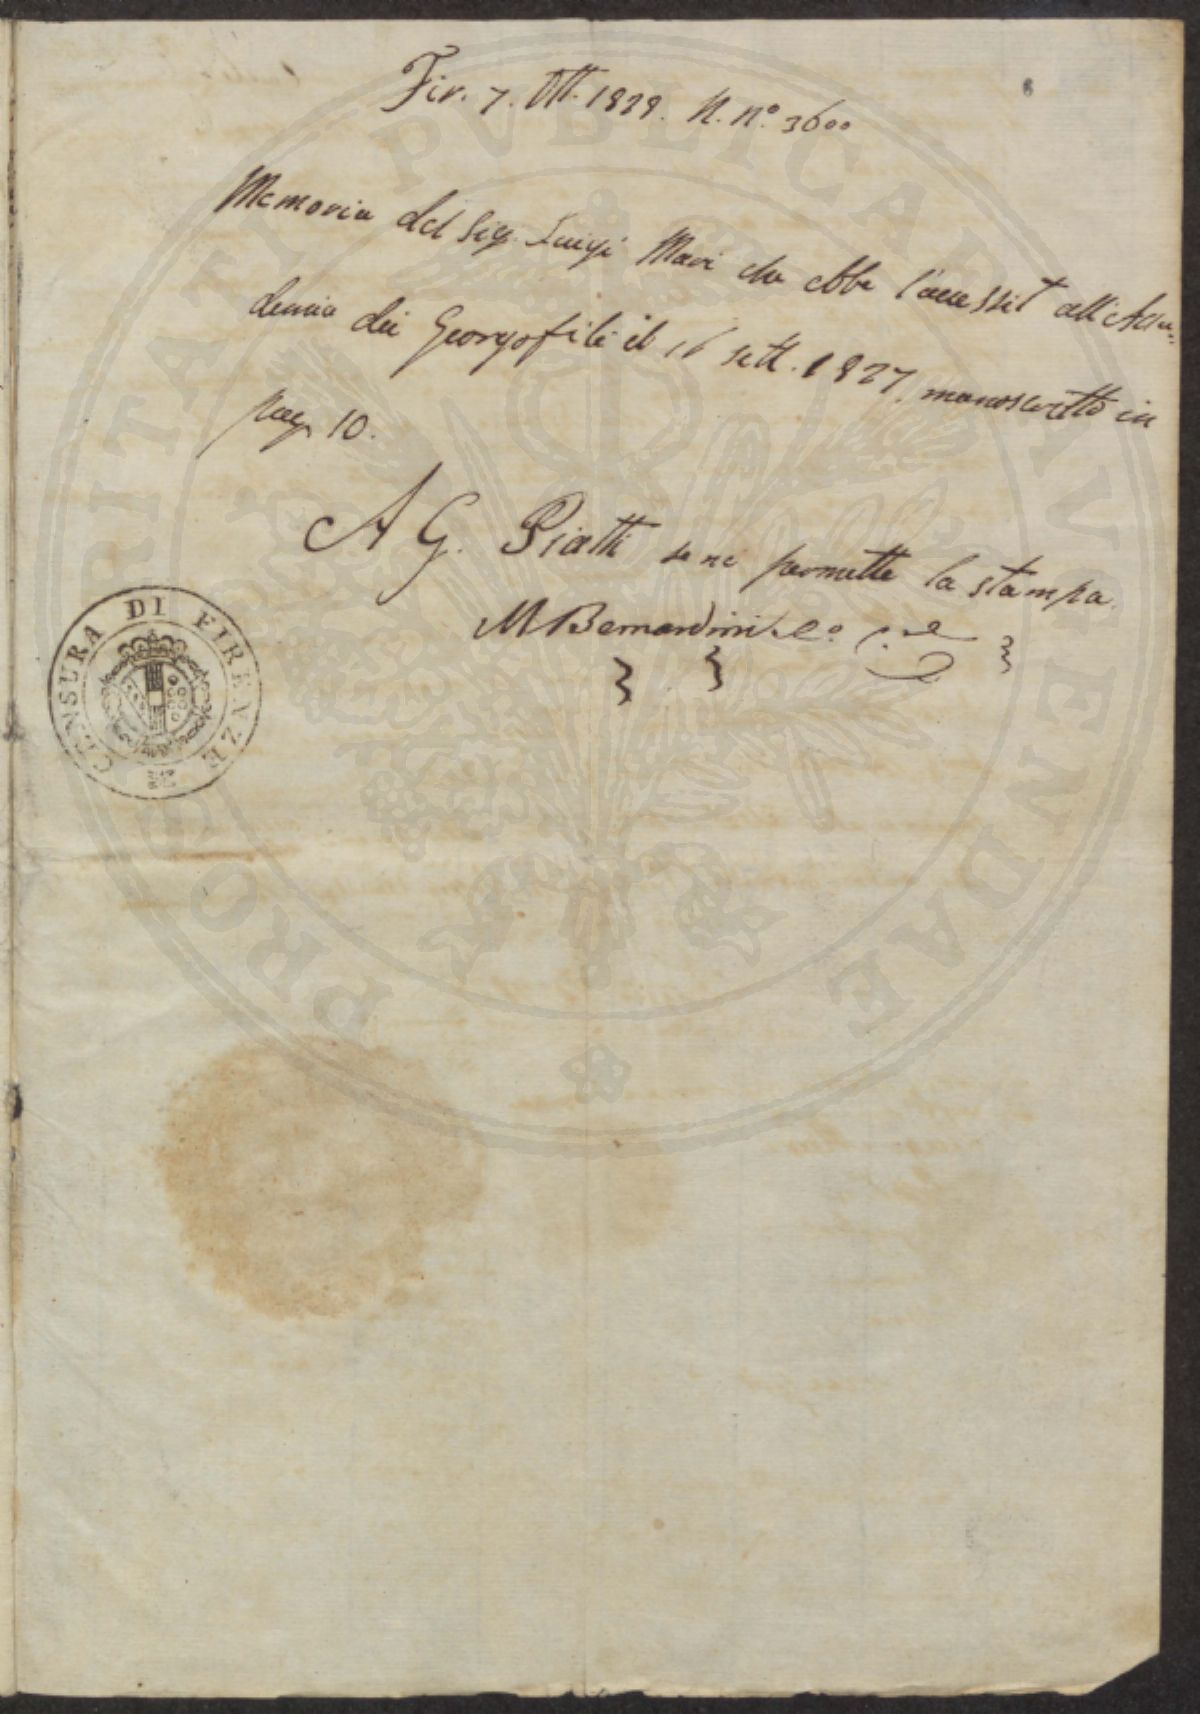 Fir. 7. Ott. 1828. N. n.º 3600
Memoria del Sig. Luigi Mari che ebbe l'accessit all'Acca-
demia dei Georgofili il 16 sett. 1827, manoscritto in
pag. 10.
A G. Piatti se ne permette la stampa.
M Bernardini
CENSURA DI FIRENZE
PROSPERITATI PVBLICAE AVGENDAE